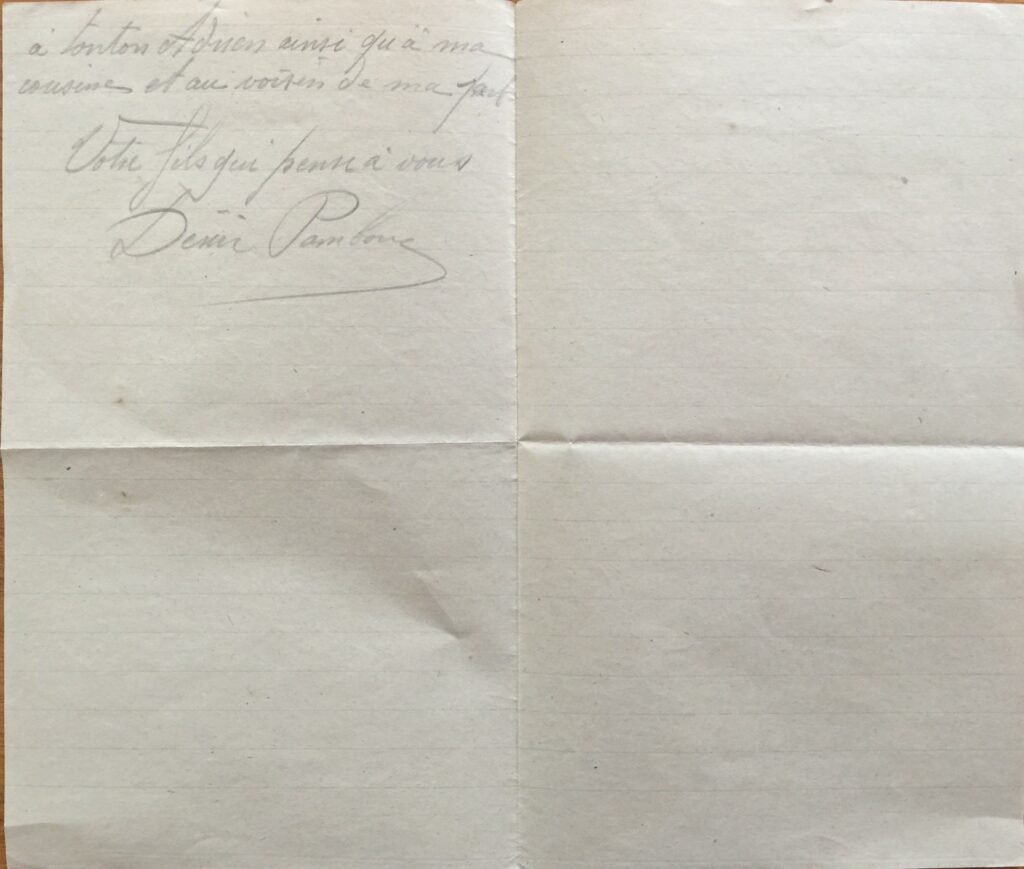 à tonton Adrien ainsi qu'à ma
cousine et au voisin de ma part
Votre fils qui pense à vous
Désir